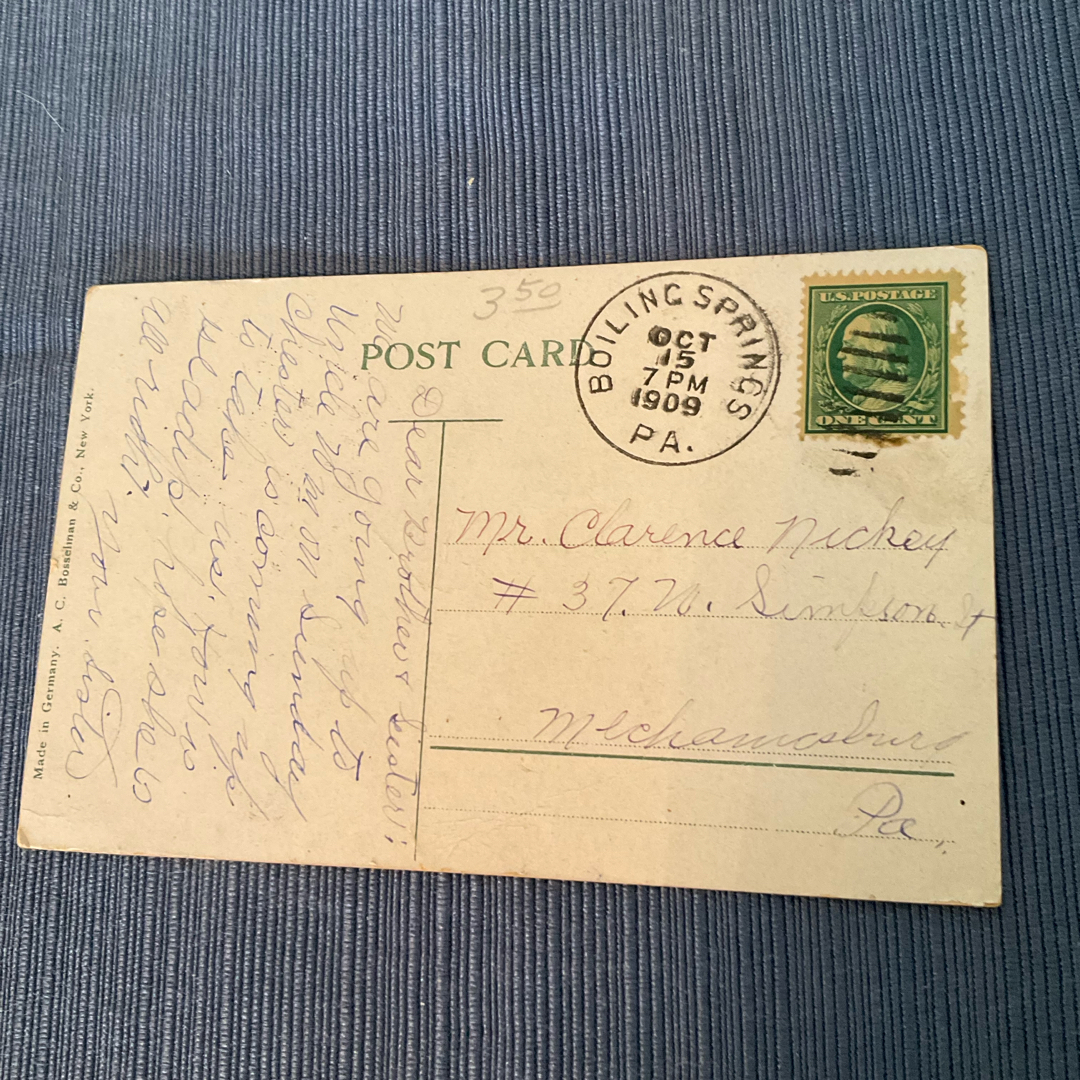 3 50
POST CARD
BOILING SPRINGS
OCT
15
7 PM
1909
PA.
U.S. POSTAGE
ONE CENT
Dear Brother & Sister:
We are going up to
Uncle on Sunday
Chester is coming up
to take us. Jow is
hope she is
all right.
Your Sister
Mr. Clarence Nickey
# 37. N. Simpson. St
Mechanicsburg
Pa.
Made in Germany. A. C. Bosselman & Co., New York.